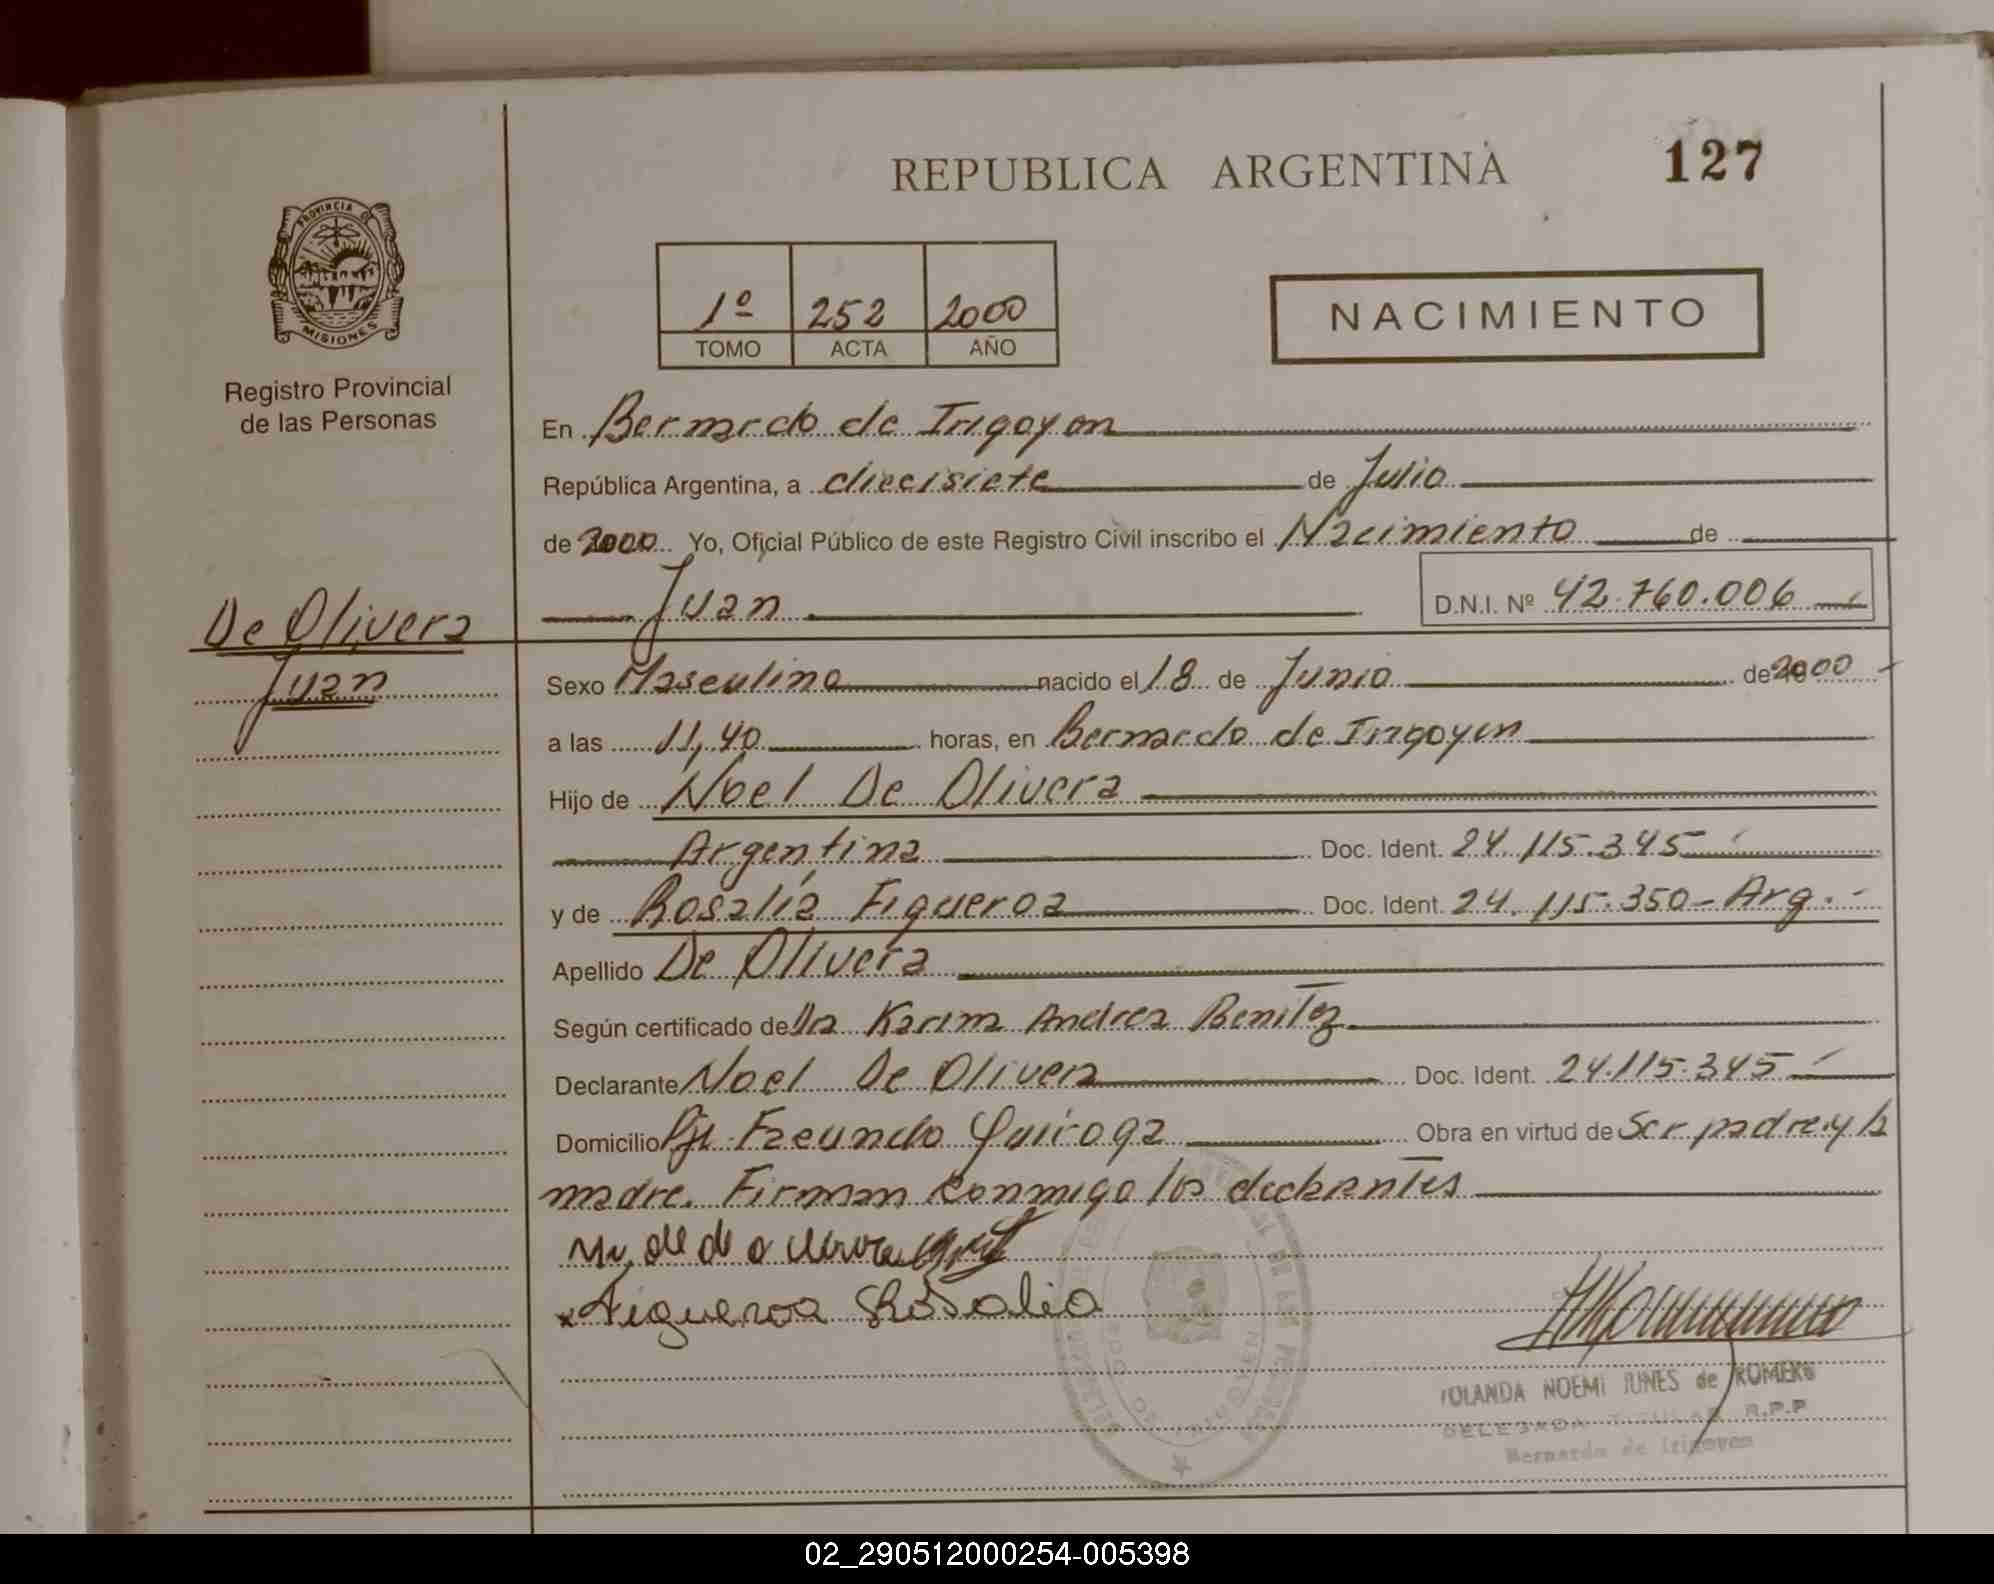 REPUBLICA ARGENTINA
127
PROVINCIA DE
MISIONES
Registro Provincial
de las Personas
1º 252 2000
TOMO ACTA AÑO
NACIMIENTO
En Bernardo de Irigoyen
República Argentina, a diecisiete de Julio
de 2000 Yo, Oficial Público de este Registro Civil inscribo el Nacimiento de
Juan D.N.I. Nº 42.760.006
De Olivera
Juan
Sexo Masculino nacido el 18 de Junio de 2000
a las 11,40 horas, en Bernardo de Irigoyen
Hijo de Noel De Olivera
Argentina Doc. Ident. 24.115.345
y de Rosalía Figueroa Doc. Ident. 24.115.350 - Arg.-
Apellido De Olivera
Según certificado de Dra Karina Andrea Benítez
Declarante Noel De Olivera Doc. Ident. 24.115.345
Domicilio Pje. Facundo Quiroga Obra en virtud de Ser padre y la
madre. Firman conmigo los declarantes
Figueroa Rosalia
YOLANDA NOEMI JUNES de ROMERO
DELEGADA TITULAR R.P.P
Bernardo de Irigoyen
02_290512000254-005398